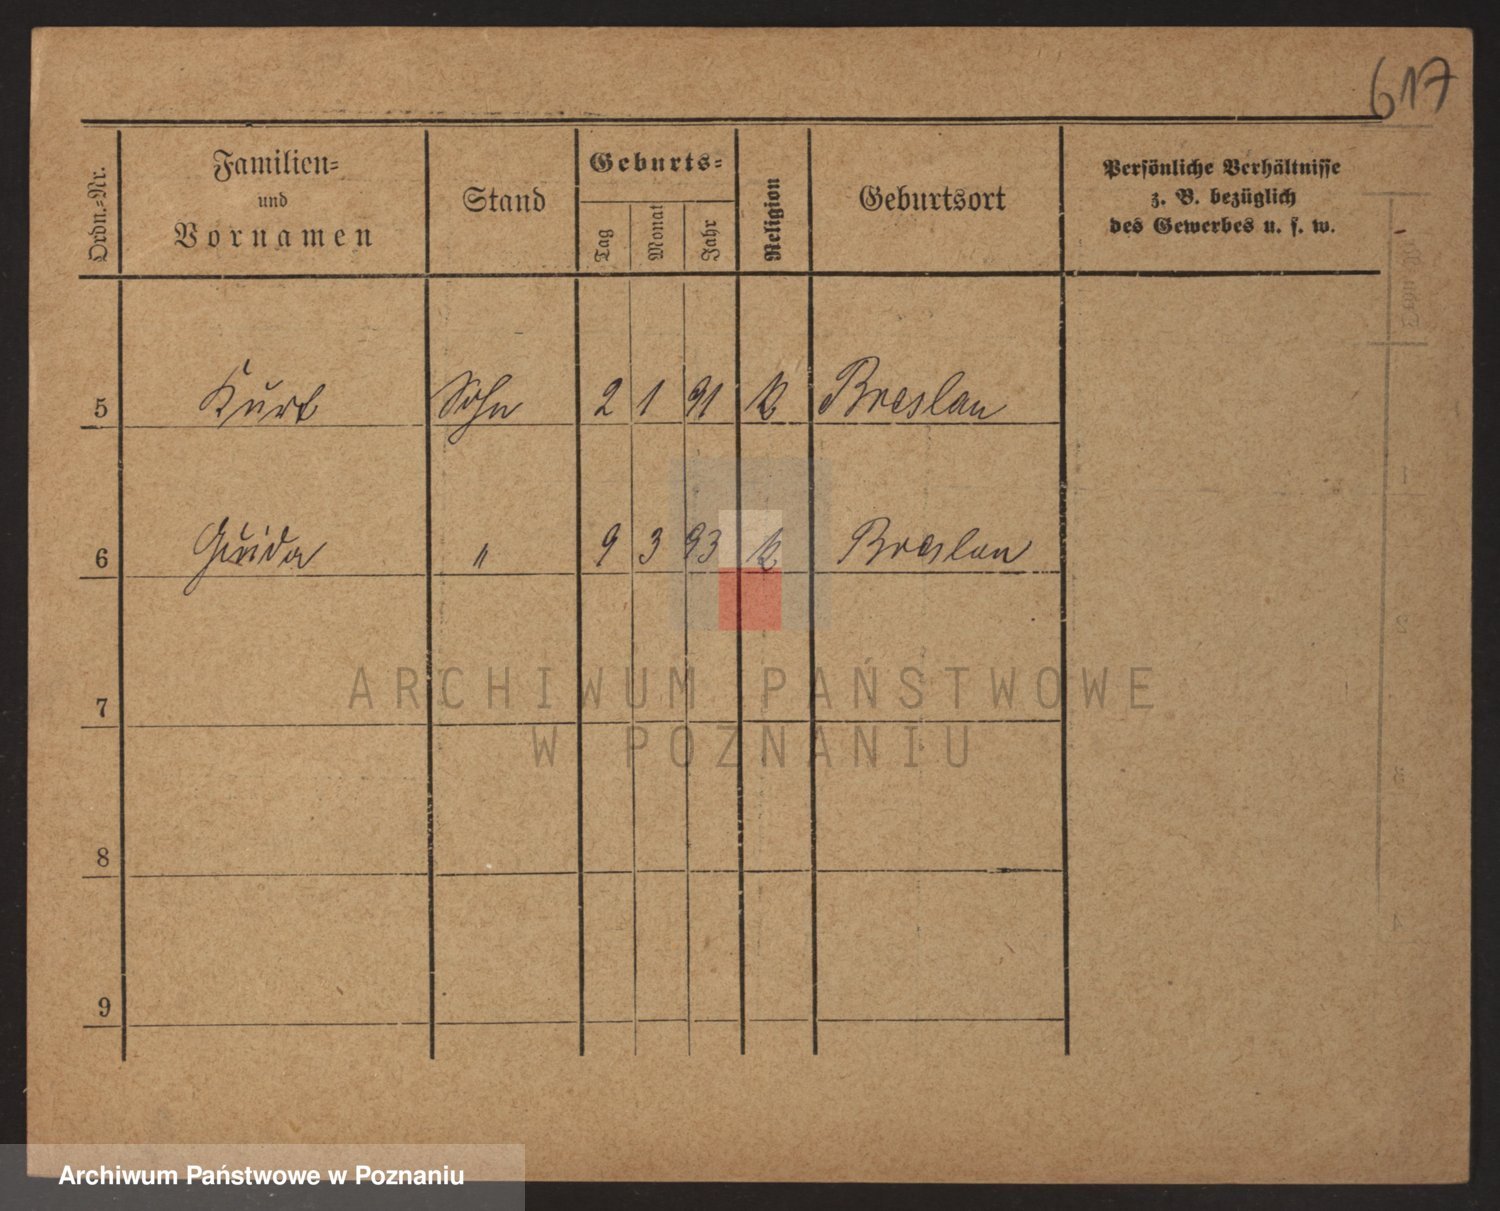 617
Ordn.-Nr. Familien- und Vornamen Stand Geburts- Tag Monat Jahr Religion Geburtsort Persönliche Verhältnisse z. B. bezüglich des Gewerbes u. s. w.
5 Kurt Sohn 2 1 91 k Breslau
6 Guida " 9 3 93 k Breslau
7
8
9
ARCHIWUM PAŃSTWOWE
W POZNANIU
Archiwum Państwowe w Poznaniu